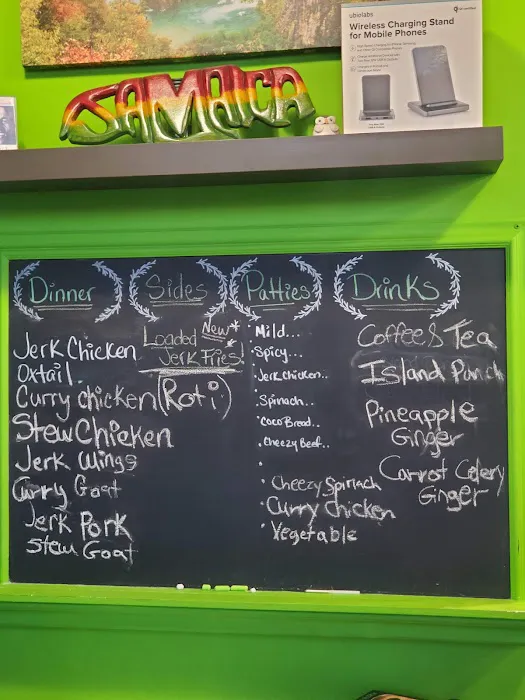 JAMAICA
ubiolabs
Wireless Charging Stand
for Mobile Phones
Dinner
Jerk Chicken
Oxtail.
Curry chicken (Roti)
Stew Chicken
Jerk Wings
Curry Goat
Jerk Pork
Stew Goat
Sides
New*
Loaded
Jerk Fries!
Patties
· Mild...
· Spicy...
· Jerk Chicken..
· Spinach..
· Coco Bread..
· Cheezy Beef..
·
· Cheezy Spinach
· Curry Chicken
· Vegetable
Drinks
Coffee & Tea
Island Punch
Pineapple
Ginger
Carrot Celery
Ginger